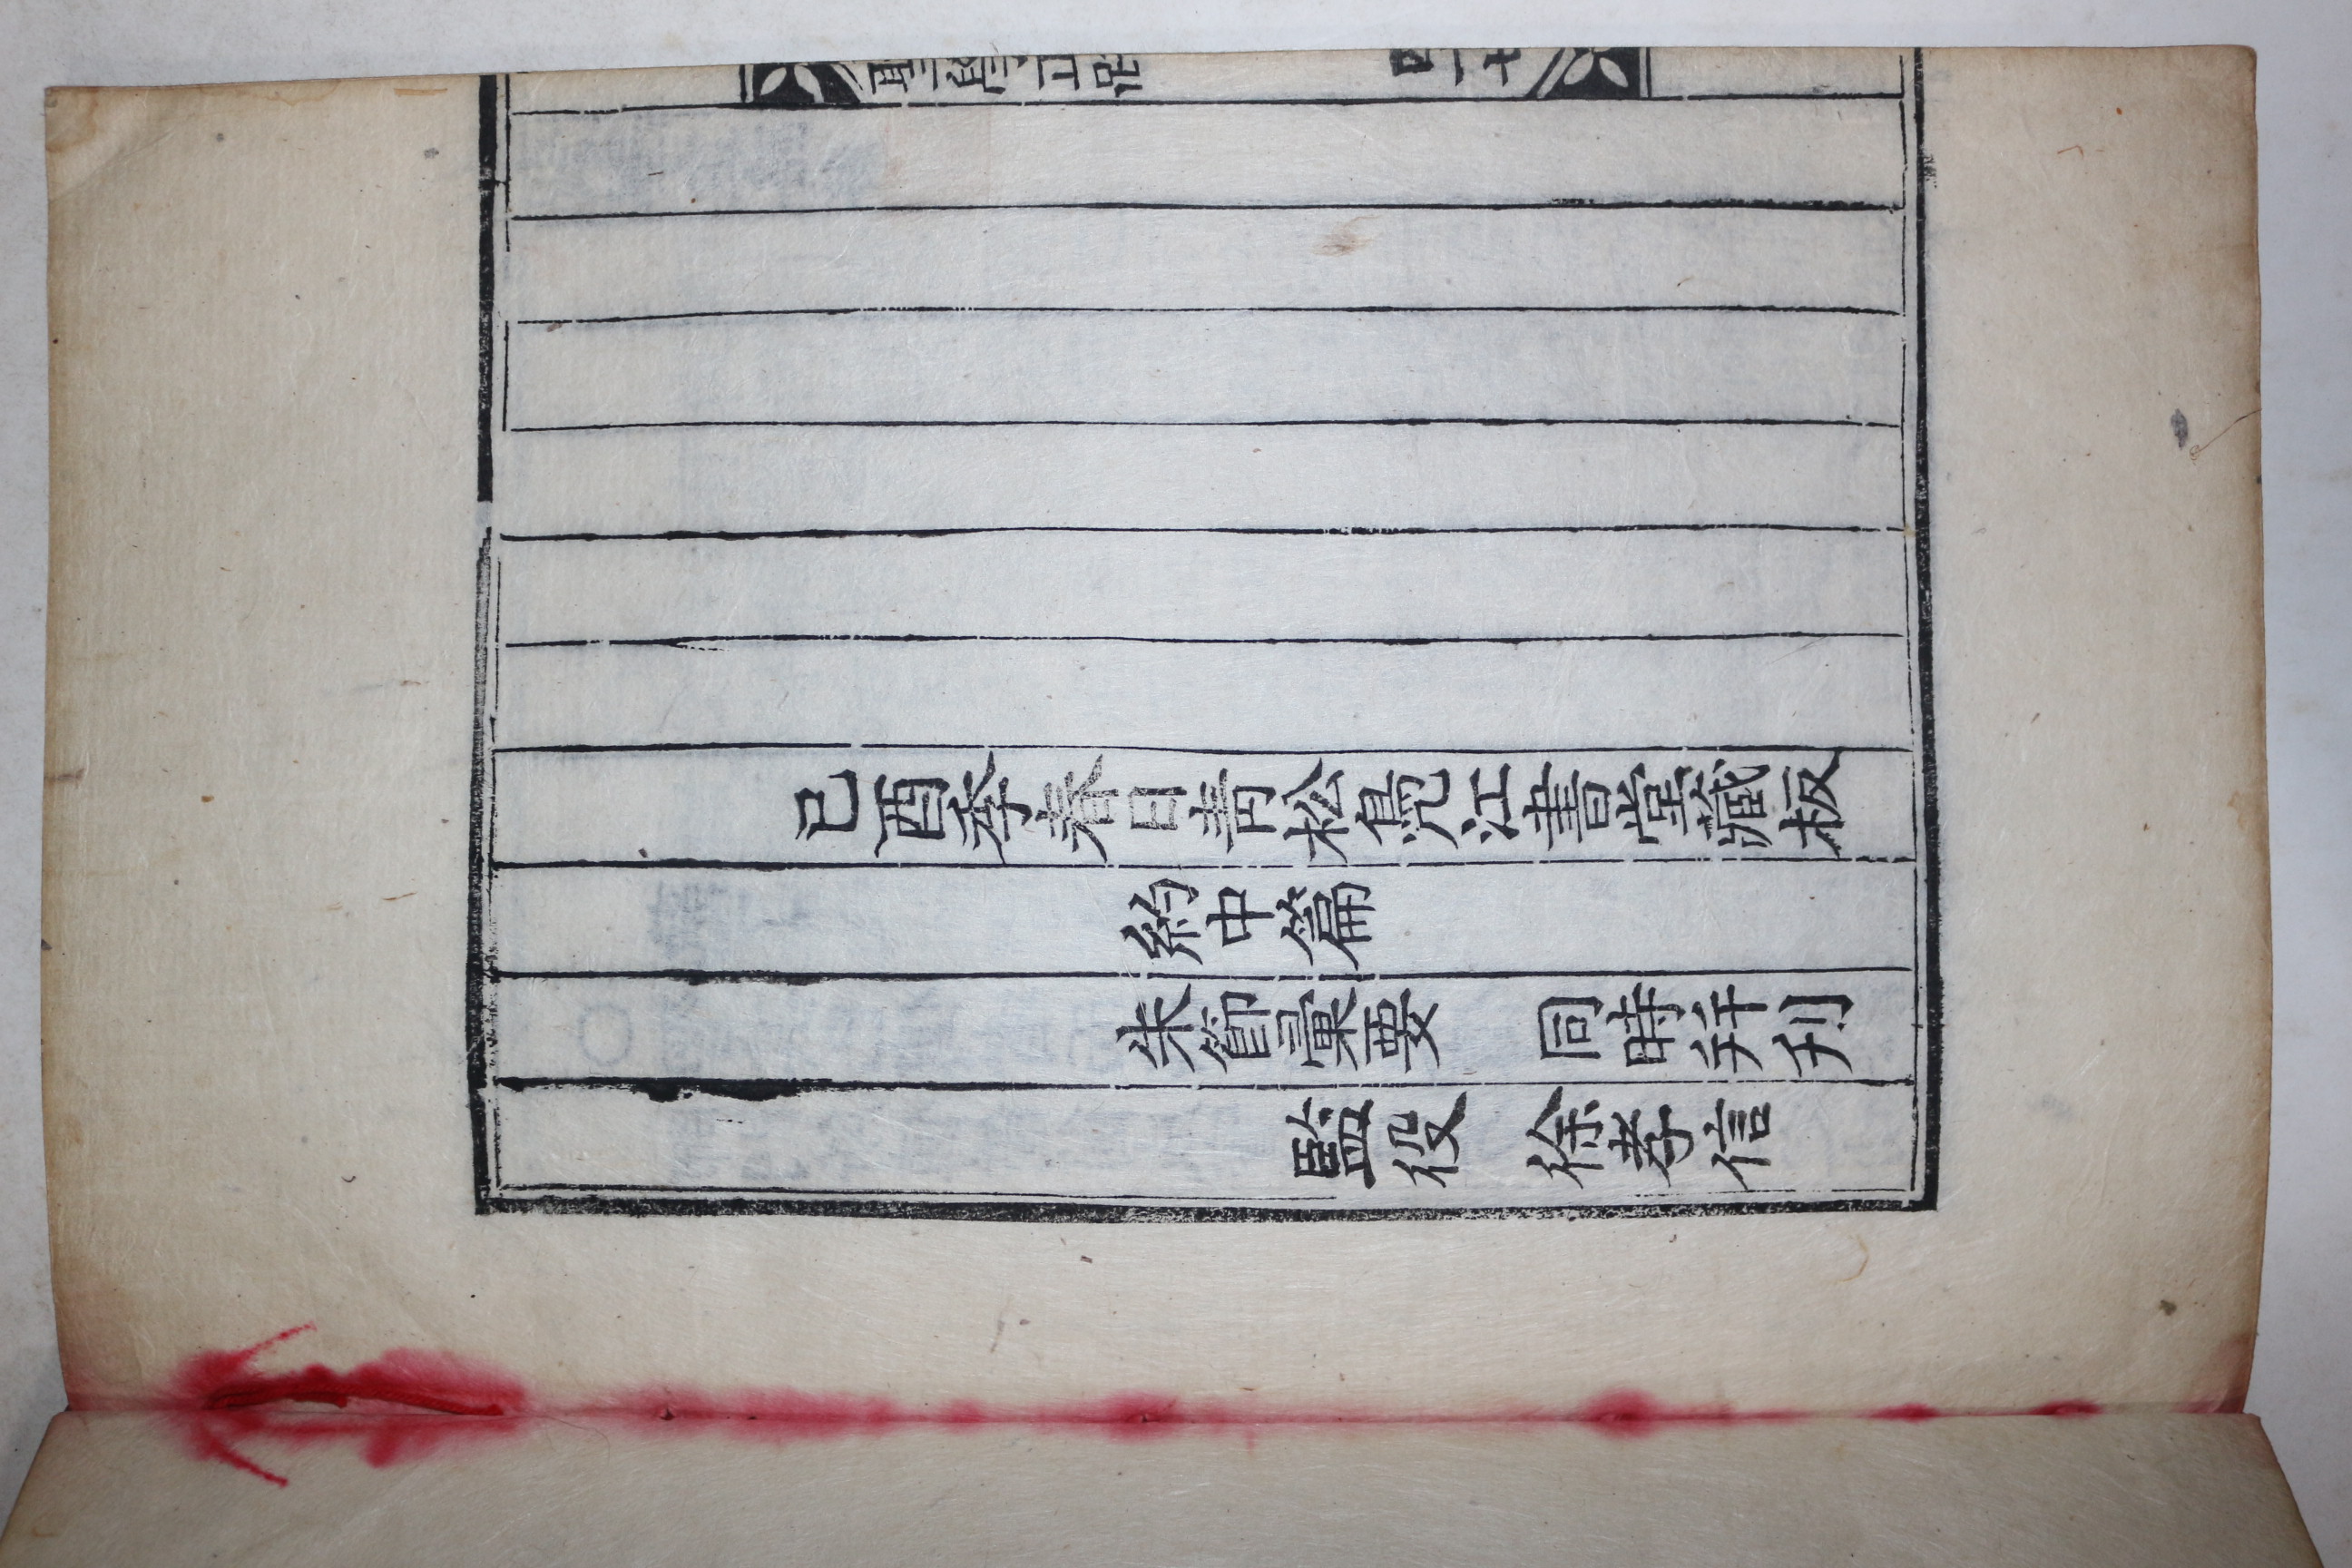 己酉季春日靑松鳧江書堂藏板
約中篇
朱節彙要　同時幷刊
監役　徐孝信